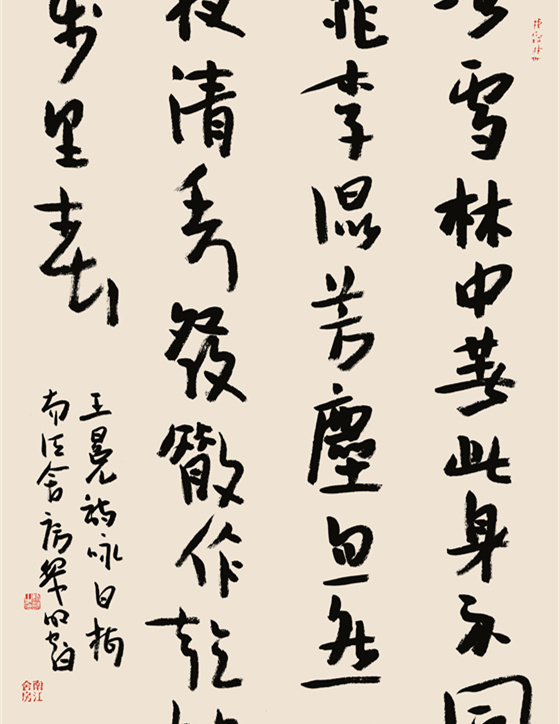 冰雪林中著此身不同
桃李混芳塵忽然一
夜清香發散作乾坤
萬里春
王冕詩咏白梅
南江舍房
南江
舍房